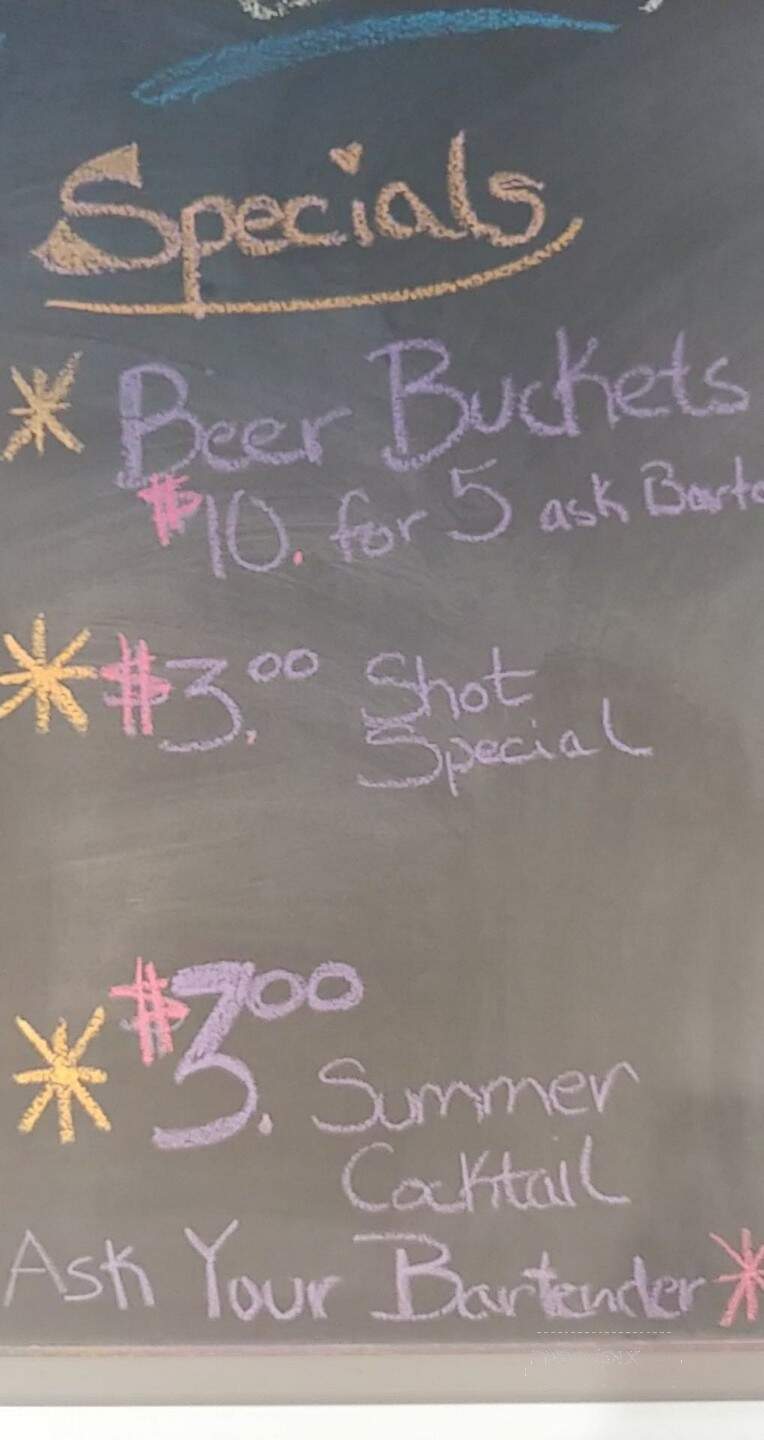 Specials
Beer Buckets
$10. for 5 ask Barte
$3.00 Shot
Special
$3.00 Summer
Cocktail
Ask Your Bartender